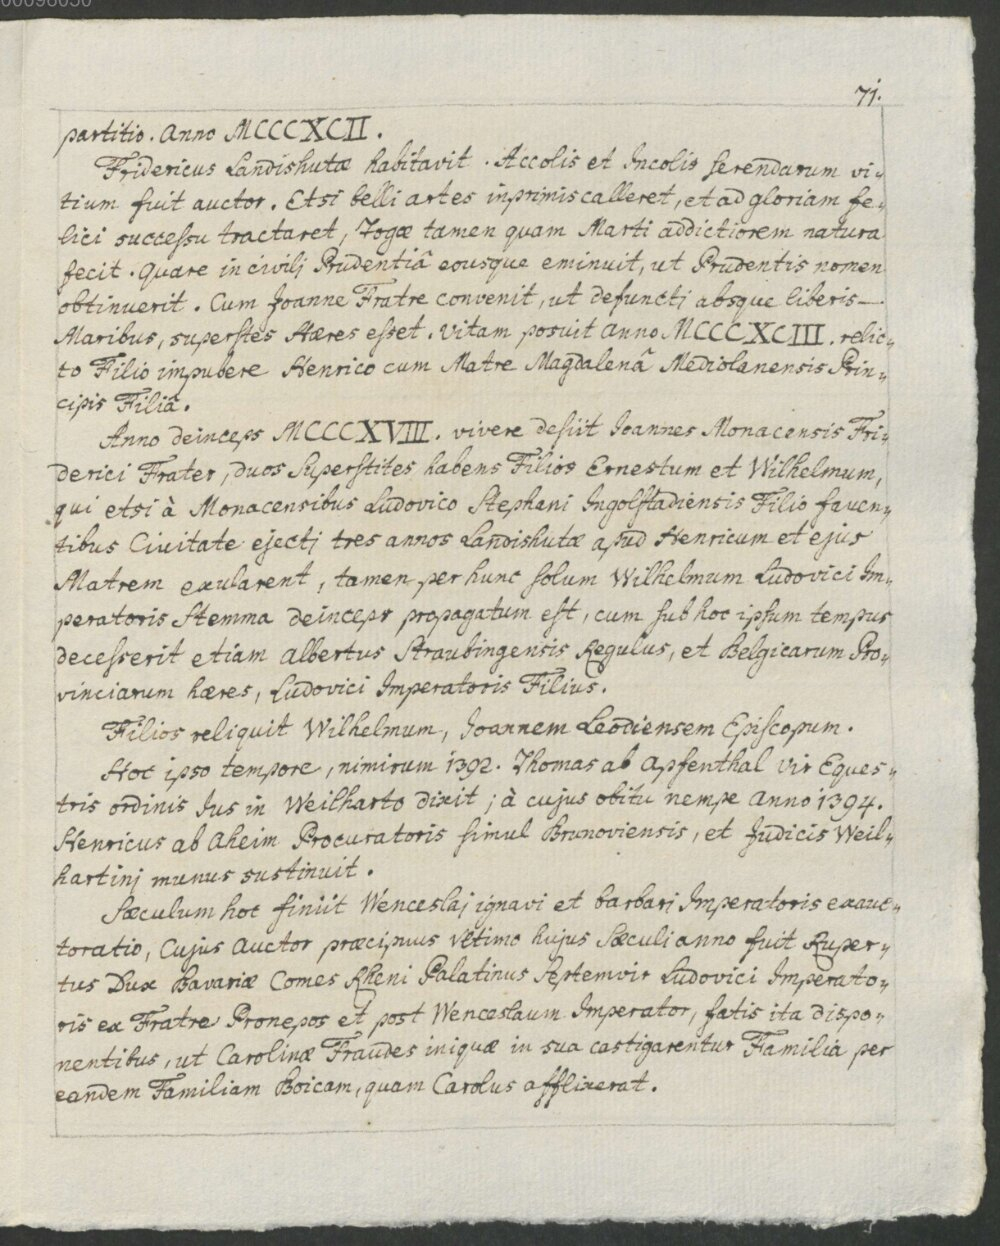 00098050
71.
partitio. Anno MCCCXCII.
Fridericus Landishutæ habitavit. Accolis et Incolis serendarum vi-
tium fuit auctor. Etsi belli artes inprimis calleret, et ad gloriam fe-
lici successu tractaret, Togæ tamen quam Marti addictiorem natura
fecit. Quare in civilj Prudentiâ eousque eminuit, ut Prudentis nomen
obtinuerit. Cum Joanne Fratre convenit, ut defunctj absque liberis—
Maribus, superstes Hæres esset. Vitam posuit Anno MCCCXCIII. relic-
to Filio impubere Henrico cum Matre Magdalenâ Mediolanensis Prin-
cipis Filiâ.
Anno deinceps MCCCXVIII. vivere desiit Joannes Monacensis Fri-
derici Frater, duos Superstites habens Filios Ernestum et Wilhelmum,
qui etsi à Monacensibus Ludovico Stephani Ingolstadiensis Filio faven-
tibus Civitate ejectj tres annos Landishutæ apud Henricum et ejus
Matrem exularent, tamen per hunc solum Wilhelmum Ludovici Im-
peratoris Stemma deinceps propagatum est, cum sub hoc ipsum tempus
decesserit etiam Albertus Straubingensis Regulus, et Belgicarum Pro-
vinciarum hæres, Ludovici Imperatoris Filius.
Filios reliquit Wilhelmum, Joannem Leodiensem Episcopum.
Hoc ipso tempore, nimirum 1392. Thomas ab Apfenthal vir Eques-
tris ordinis Jus in Weilharto dixit; à cujus obitu nempe Anno 1394.
Henricus ab Aheim Procuratoris simul Brunoviensis, et Judicis Weil-
hartinj munus sustinuit.
Sæculum hoc finiit Wenceslaj ignavi et barbarj Imperatoris exauc-
toratio, Cujus Auctor præcipuus ultimo hujus Sæculi anno fuit Ruper-
tus Dux Bavariæ Comes Rheni Palatinus Septemvir Ludovici Imperato-
ris ex Fratre Pronepos et post Wenceslaum Imperator, fatis ita dispo-
nentibus, ut Carolinæ Fraudes iniquæ in sua castigarentur Familia per
eandem Familiam Boicam, quam Carolus afflixerat.